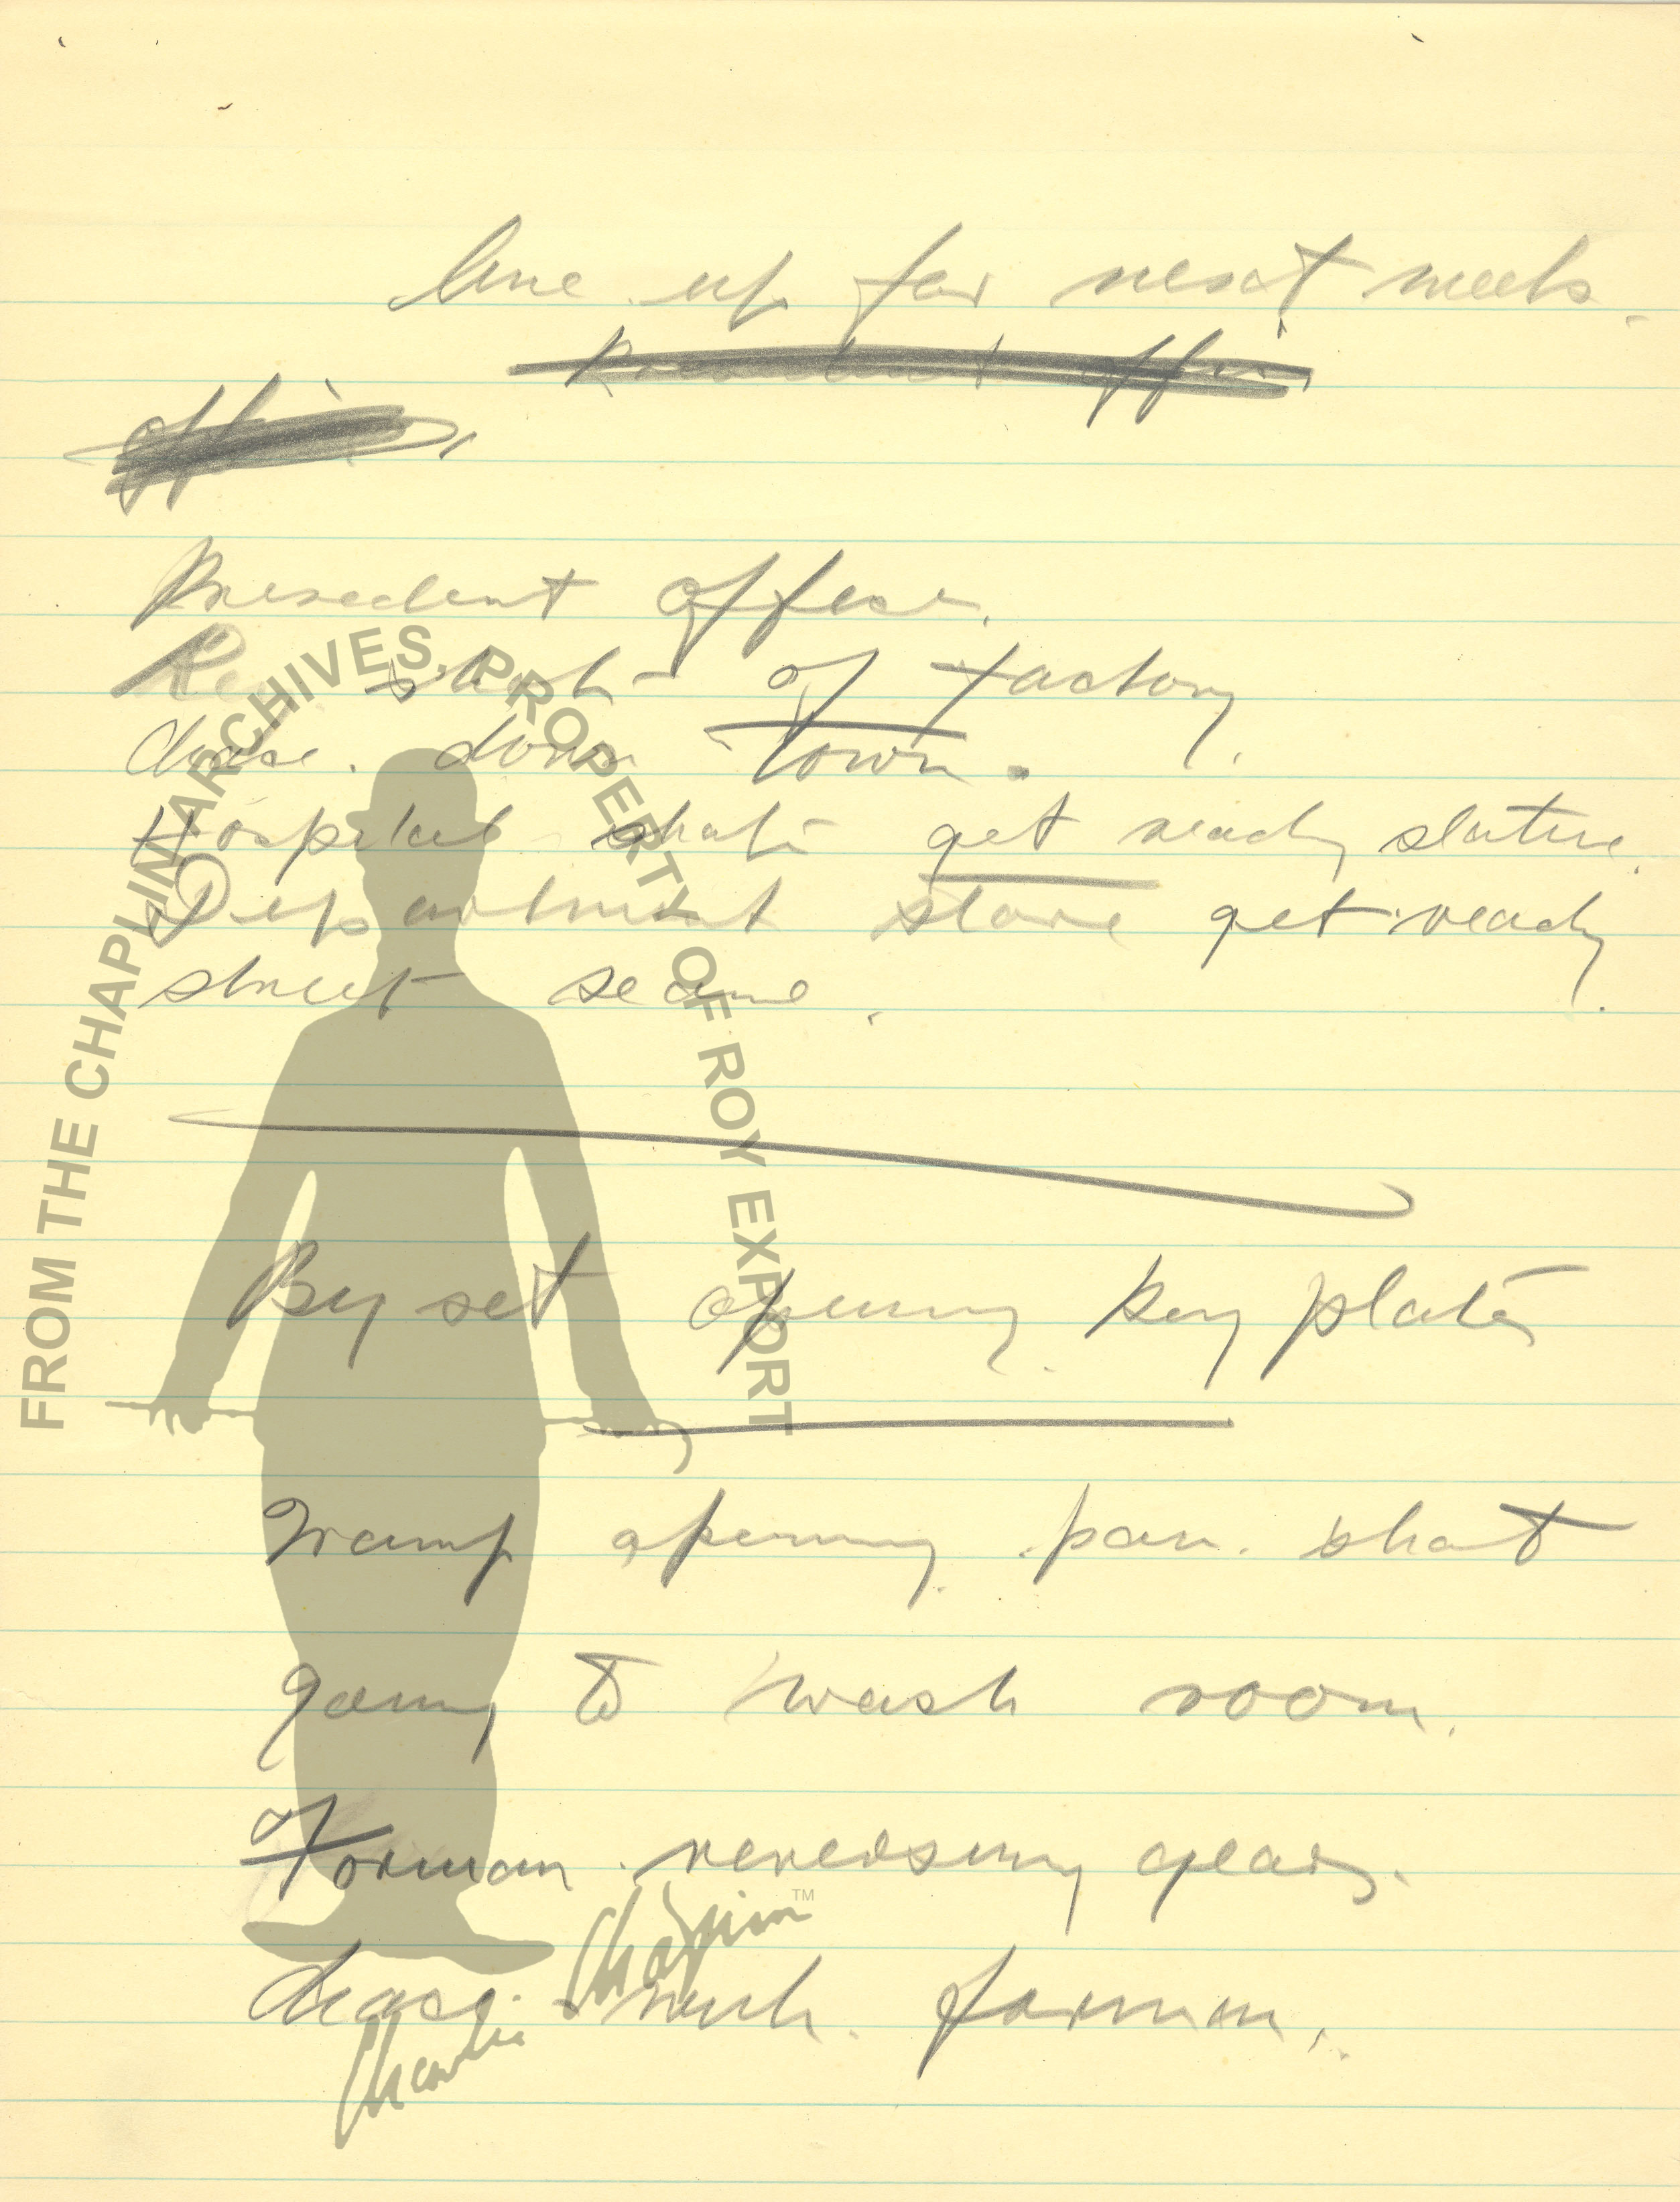 line up for next week.
President office
office
President office.
Re shots of factory
chase down town.
Hospital shots get ready statue.
Department store get ready
street scene.
By set opening key plates
Tramp opening pan. shot
going to wash room.
Forman reversing gears.
chase with forman.
FROM THE CHAPLIN ARCHIVES, PROPERTY OF ROY EXPORT
Charlie Chaplin™